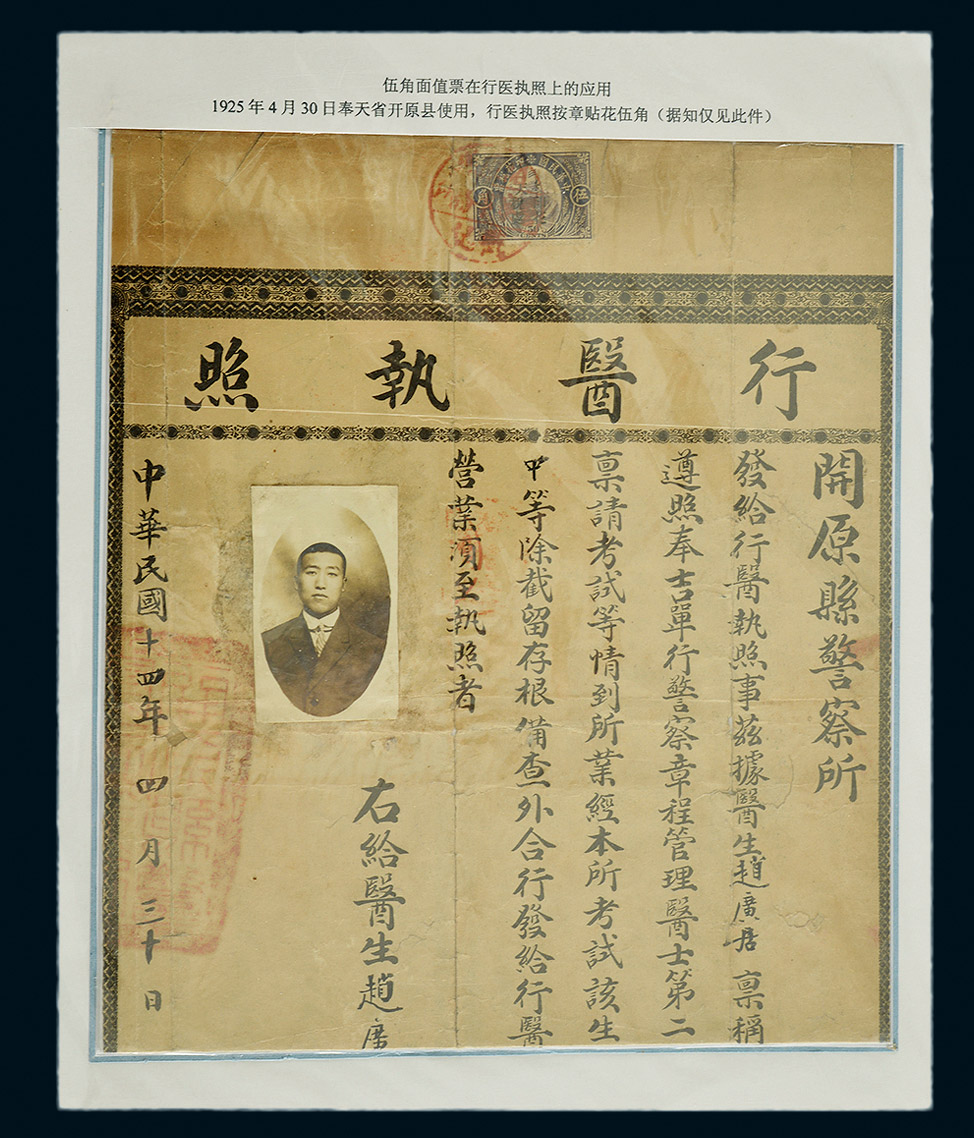 伍角面值票在行医执照上的应用
1925年4月30日奉天省开原县使用，行医执照按章贴花伍角（据知仅见此件）
行醫執照
開原縣警察所
發給行醫執照事茲據醫生趙廣居稟稱
遵照奉吉單行警察章程管理醫士第二
稟請考試等情到所業經本所考試該生
中等除截留存根備查外合行發給行醫
營業須至執照者
右給醫生趙
中華民國十四年四月三十日